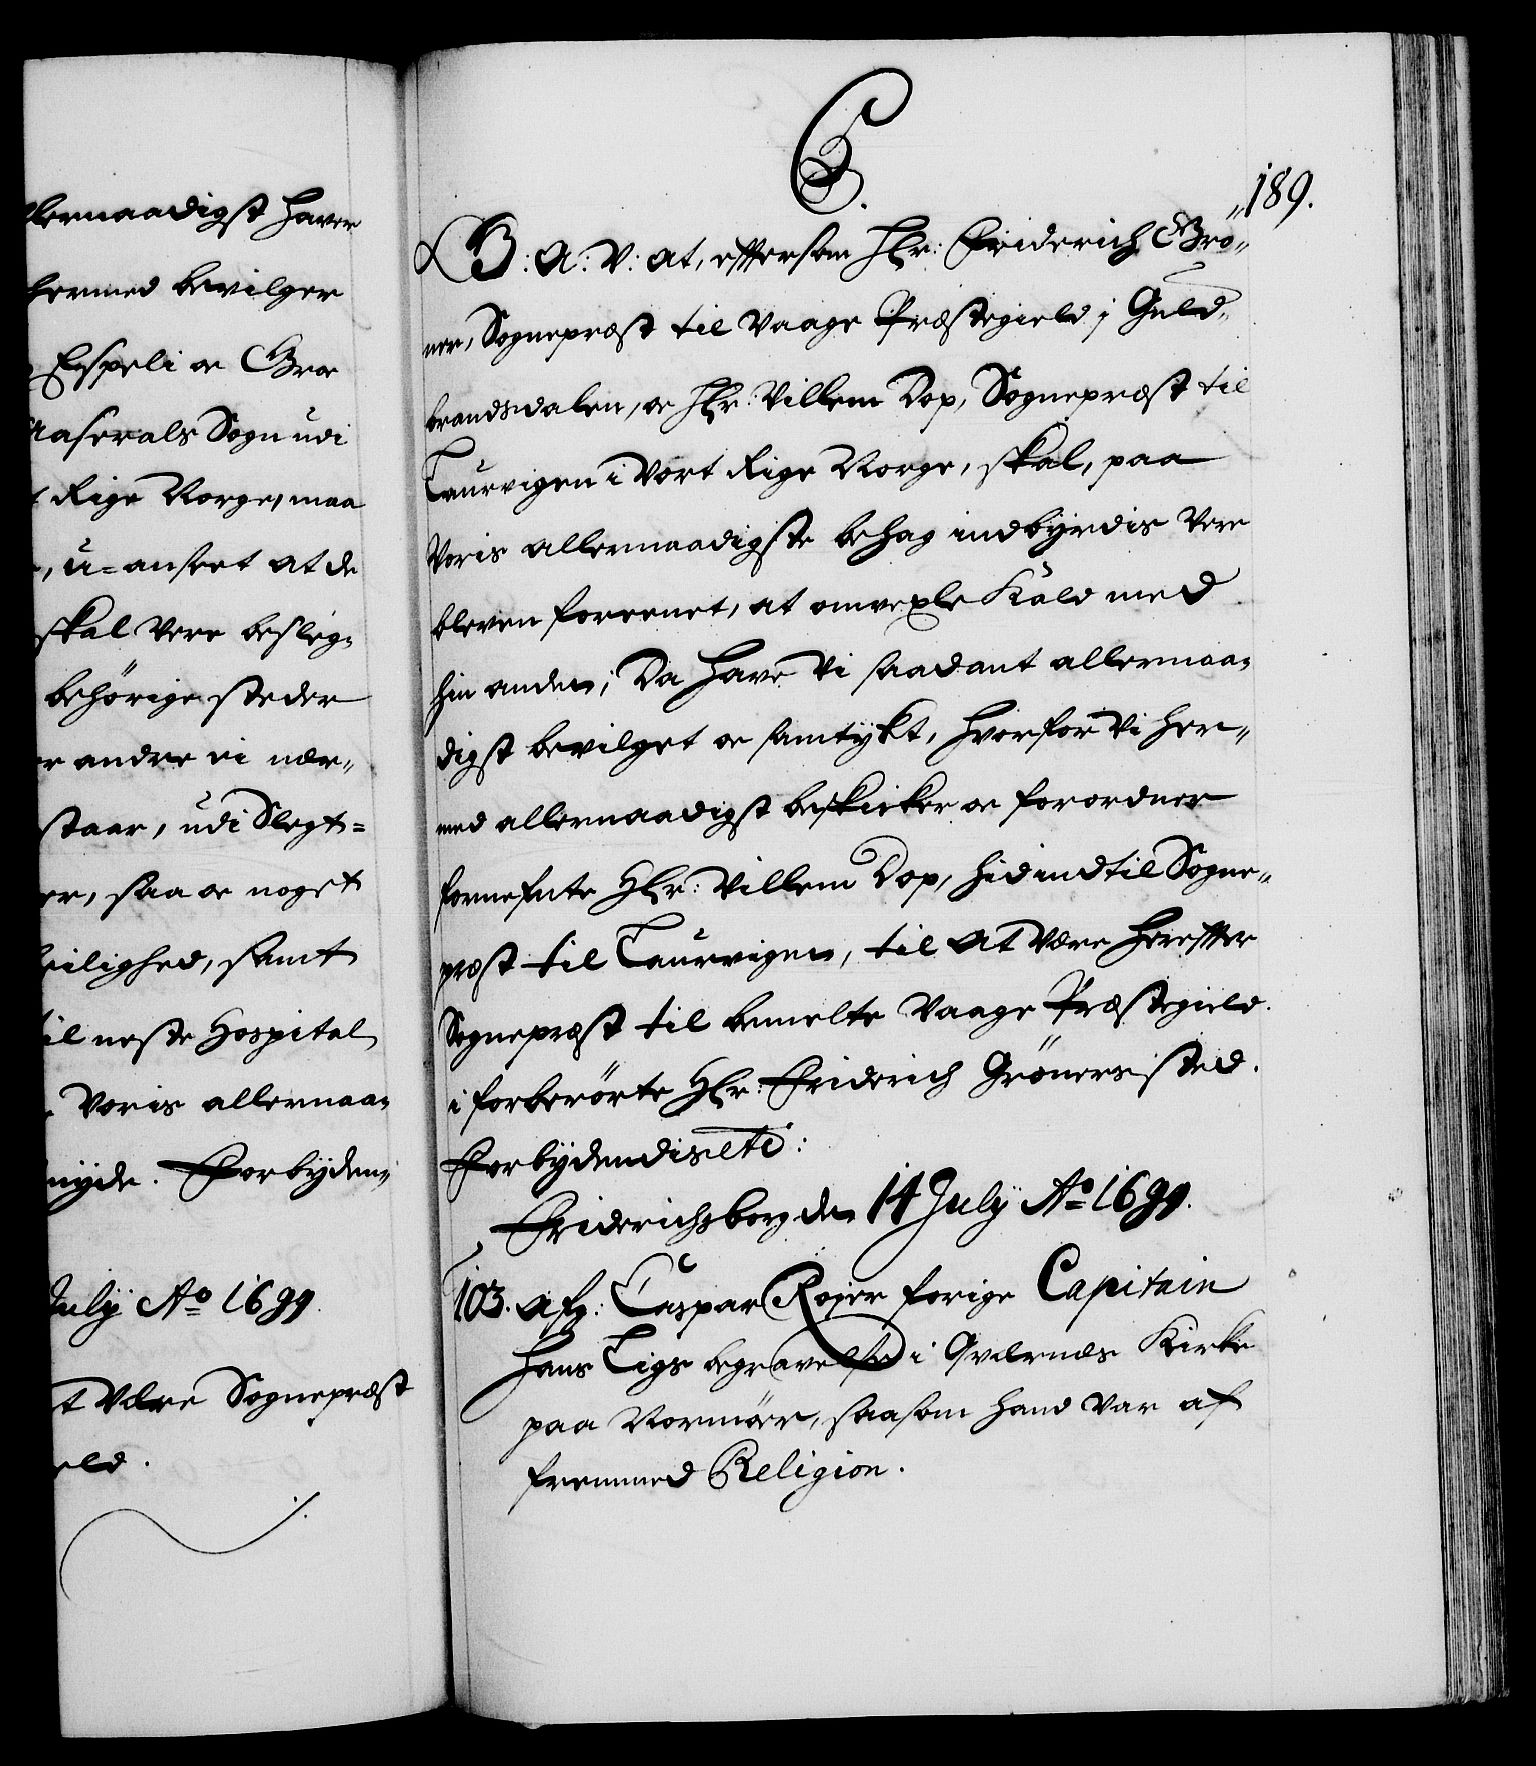 llernaadigst haver
hermed bevilger
Espeli oc Gro
Aaserals Sogn udi
t Rige Norge, maa
, u=anseet at de
skal være beslig-
behörige steder
r andre ei nær-
staar, udi Slegt=
er, saa oc noget
eilighed, samt
til neste Hospital
Voris allernaa-
nyde. Forbyden-
July Ao 1699
t være Sognepræst
eld.
C5.
189.
G: A: V: at, efftersom Hr: Friderich Grö-
ner, Sognepræst til Vaage Præstegield i Guld-
brandsdalen, oc Hr: Villem Dop, Sognepræst til
Laurvigen i Vort Rige Norge, skal, paa
Voris allernaadigste behag indbyrdis være
bleven foreenet, at omvexle Kald med
hin anden; Da have Vi saadant allernaa-
digst bevilget oc samtykt, hvorfor Vi her-
med allernaadigst beskicker oc forordner
fornefnte Hr: Villem Dop, hidindtil Sogne-
præst til Laurvigen, til at være herefter
Sognepræst til bemelte Vaage Præstegield
i forberörte Hr: Friderich Gröners sted.
Forbydendis etc:
Friderichsborg den 14 July Ao 1699.
103. Afg: Caspar Rojer forige Capitain
Hans Ligs begravelse i Qvernes Kirke
paa Normör, saasom hand var af
fremmed Religion.